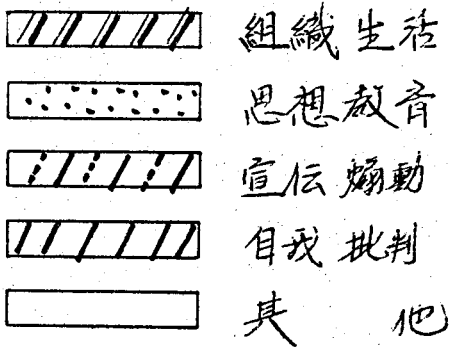 組織生活
思想教育
宣伝煽動
自我批判
其他